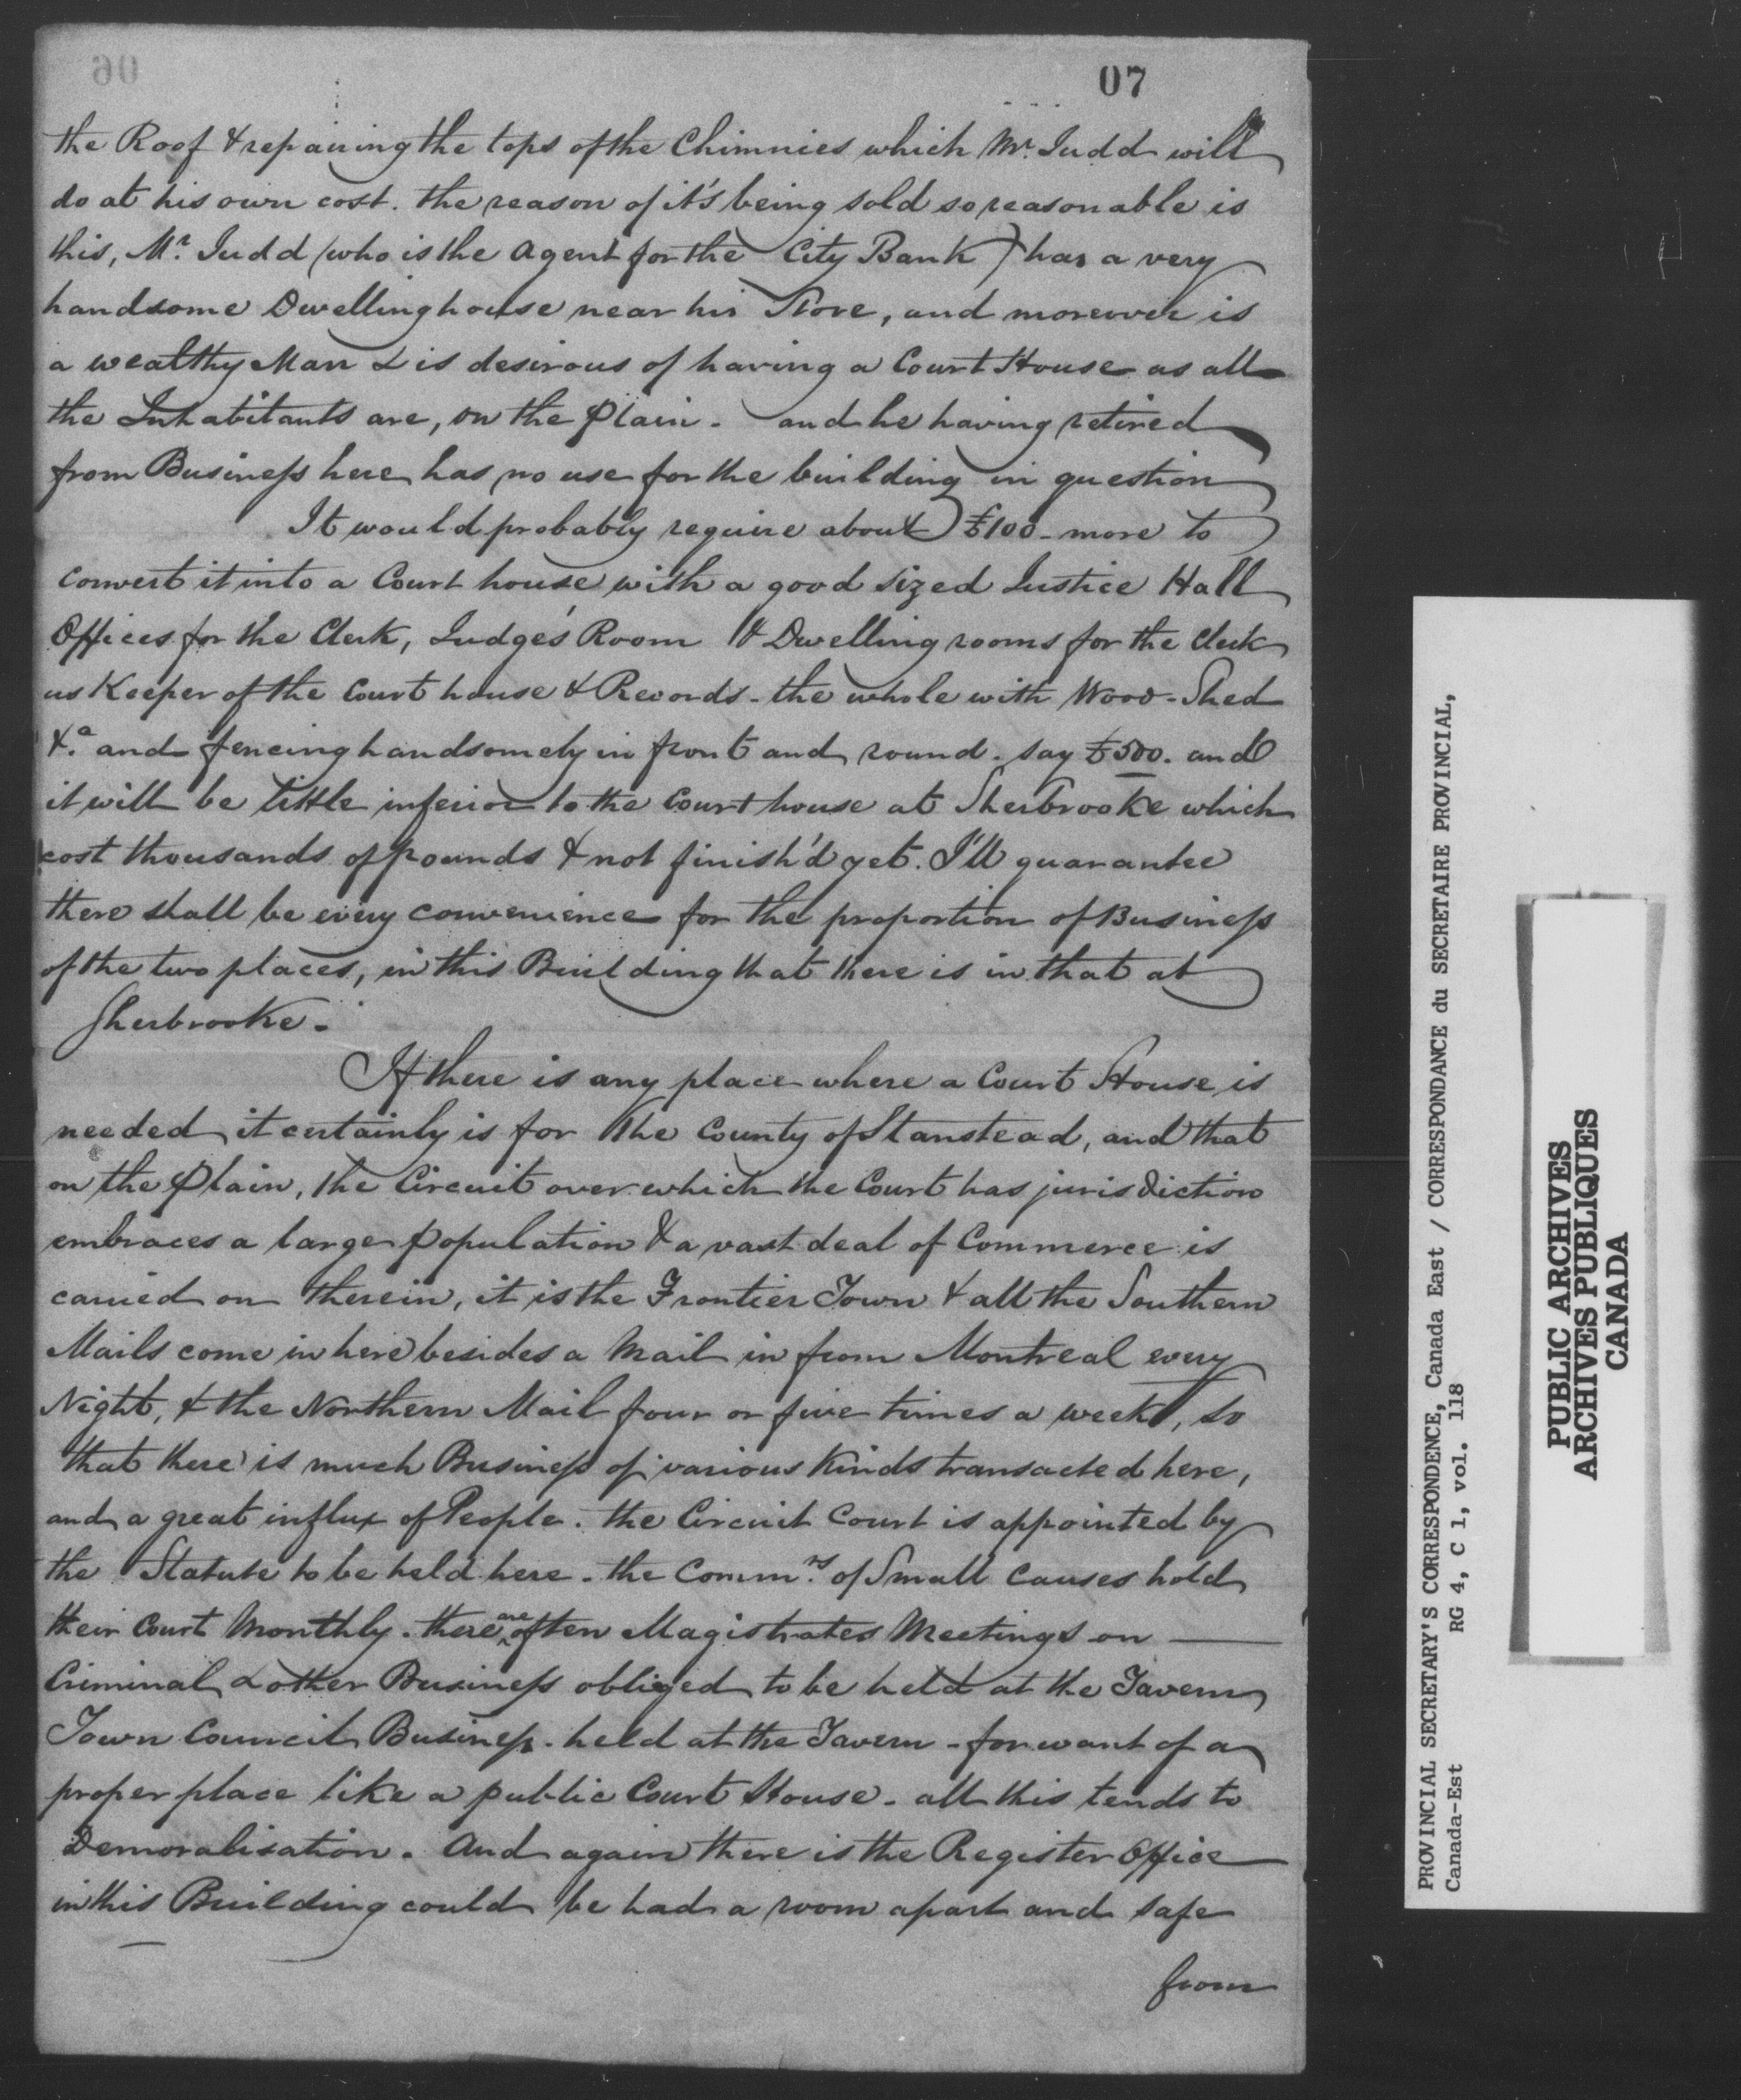 07
the Roof & repairing the tops of the Chimnies which Mr. Judd will
do at his own cost. the reason of it's being sold so reasonable is
this, Mr. Judd (who is the Agent for the City Bank) has a very
handsome Dwelling house near his Store, and moreover is
a wealthy Man & is desirous of having a Court House as all
the Inhabitants are, on the Plain. and he having retired
from Business here has no use for the building in question
It would probably require about £100 - more to
convert it into a Court house with a good sized Justice Hall
Offices for the Clerk, Judge's Room & Dwelling rooms for the Clerk
as Keeper of the Court house & Records - the whole with Wood-Shed
&.a and fencing handsomely in front and round. say £500. and
it will be little inferior to the Court house at Sherbrooke which
cost thousands of pounds & not finish'd yet. I'll guarantee
there shall be every convenience for the proportion of Business
of the two places, in this Building that there is in that at
Sherbrooke.
If there is any place where a Court House is
needed it certainly is for the County of Stanstead, and that
on the Plain, the Circuit over which the Court has jurisdiction
embraces a large population & a vast deal of Commerce is
carried on therein, it is the Frontier Town & all the Southern
Mails come in here besides a Mail in from Montreal every
Night, & the Northern Mail four or five times a week, so
that there is much Business of various Kinds transacted here,
and a great influx of People. the Circuit Court is appointed by
the Statute to be held here - the Comm.rs of Small Causes hold
their Court Monthly. there are often Magistrates Meetings on
Criminal & other Business obliged to be held at the Tavern
Town Council Business - held at the Tavern - for want of a
proper place like a public Court House - all this tends to
Demoralisation. And again there is the Register Office
in this Building could be had a room apart and safe
from
PROVINCIAL SECRETARY'S CORRESPONDENCE, Canada East / CORRESPONDANCE du SECRETAIRE PROVINCIAL,
Canada-Est RG 4, C 1, vol. 118
PUBLIC ARCHIVES
ARCHIVES PUBLIQUES
CANADA